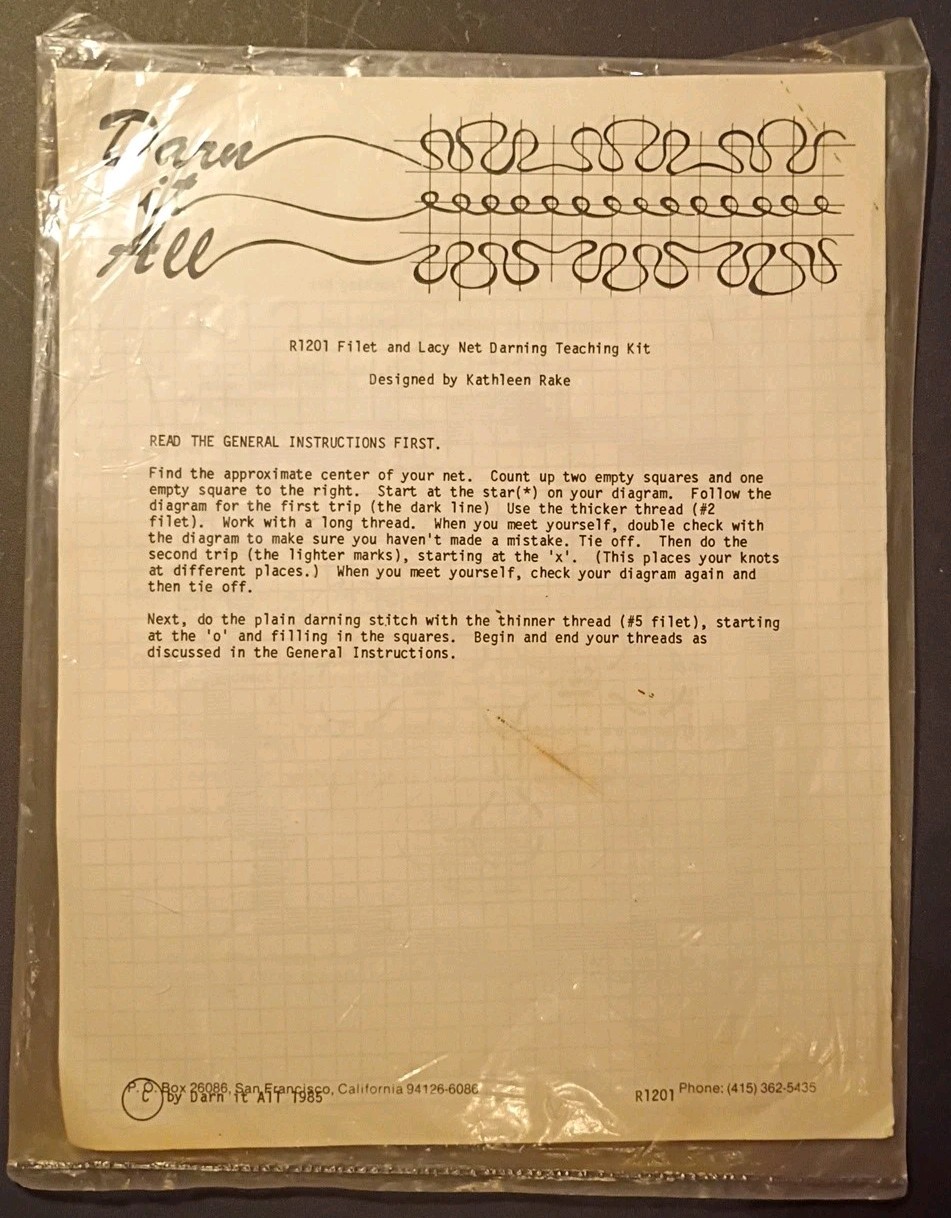 Darn
it
All
R1201 Filet and Lacy Net Darning Teaching Kit
Designed by Kathleen Rake
READ THE GENERAL INSTRUCTIONS FIRST.
Find the approximate center of your net. Count up two empty squares and one
empty square to the right. Start at the star(*) on your diagram. Follow the
diagram for the first trip (the dark line) Use the thicker thread (#2
filet). Work with a long thread. When you meet yourself, double check with
the diagram to make sure you haven't made a mistake. Tie off. Then do the
second trip (the lighter marks), starting at the 'x'. (This places your knots
at different places.) When you meet yourself, check your diagram again and
then tie off.
Next, do the plain darning stitch with the thinner thread (#5 filet), starting
at the 'o' and filling in the squares. Begin and end your threads as
discussed in the General Instructions.
P. O. Box 26086, San Francisco, California 94126-6086
Phone: (415) 362-5435
C by Darn it All 1985
R1201